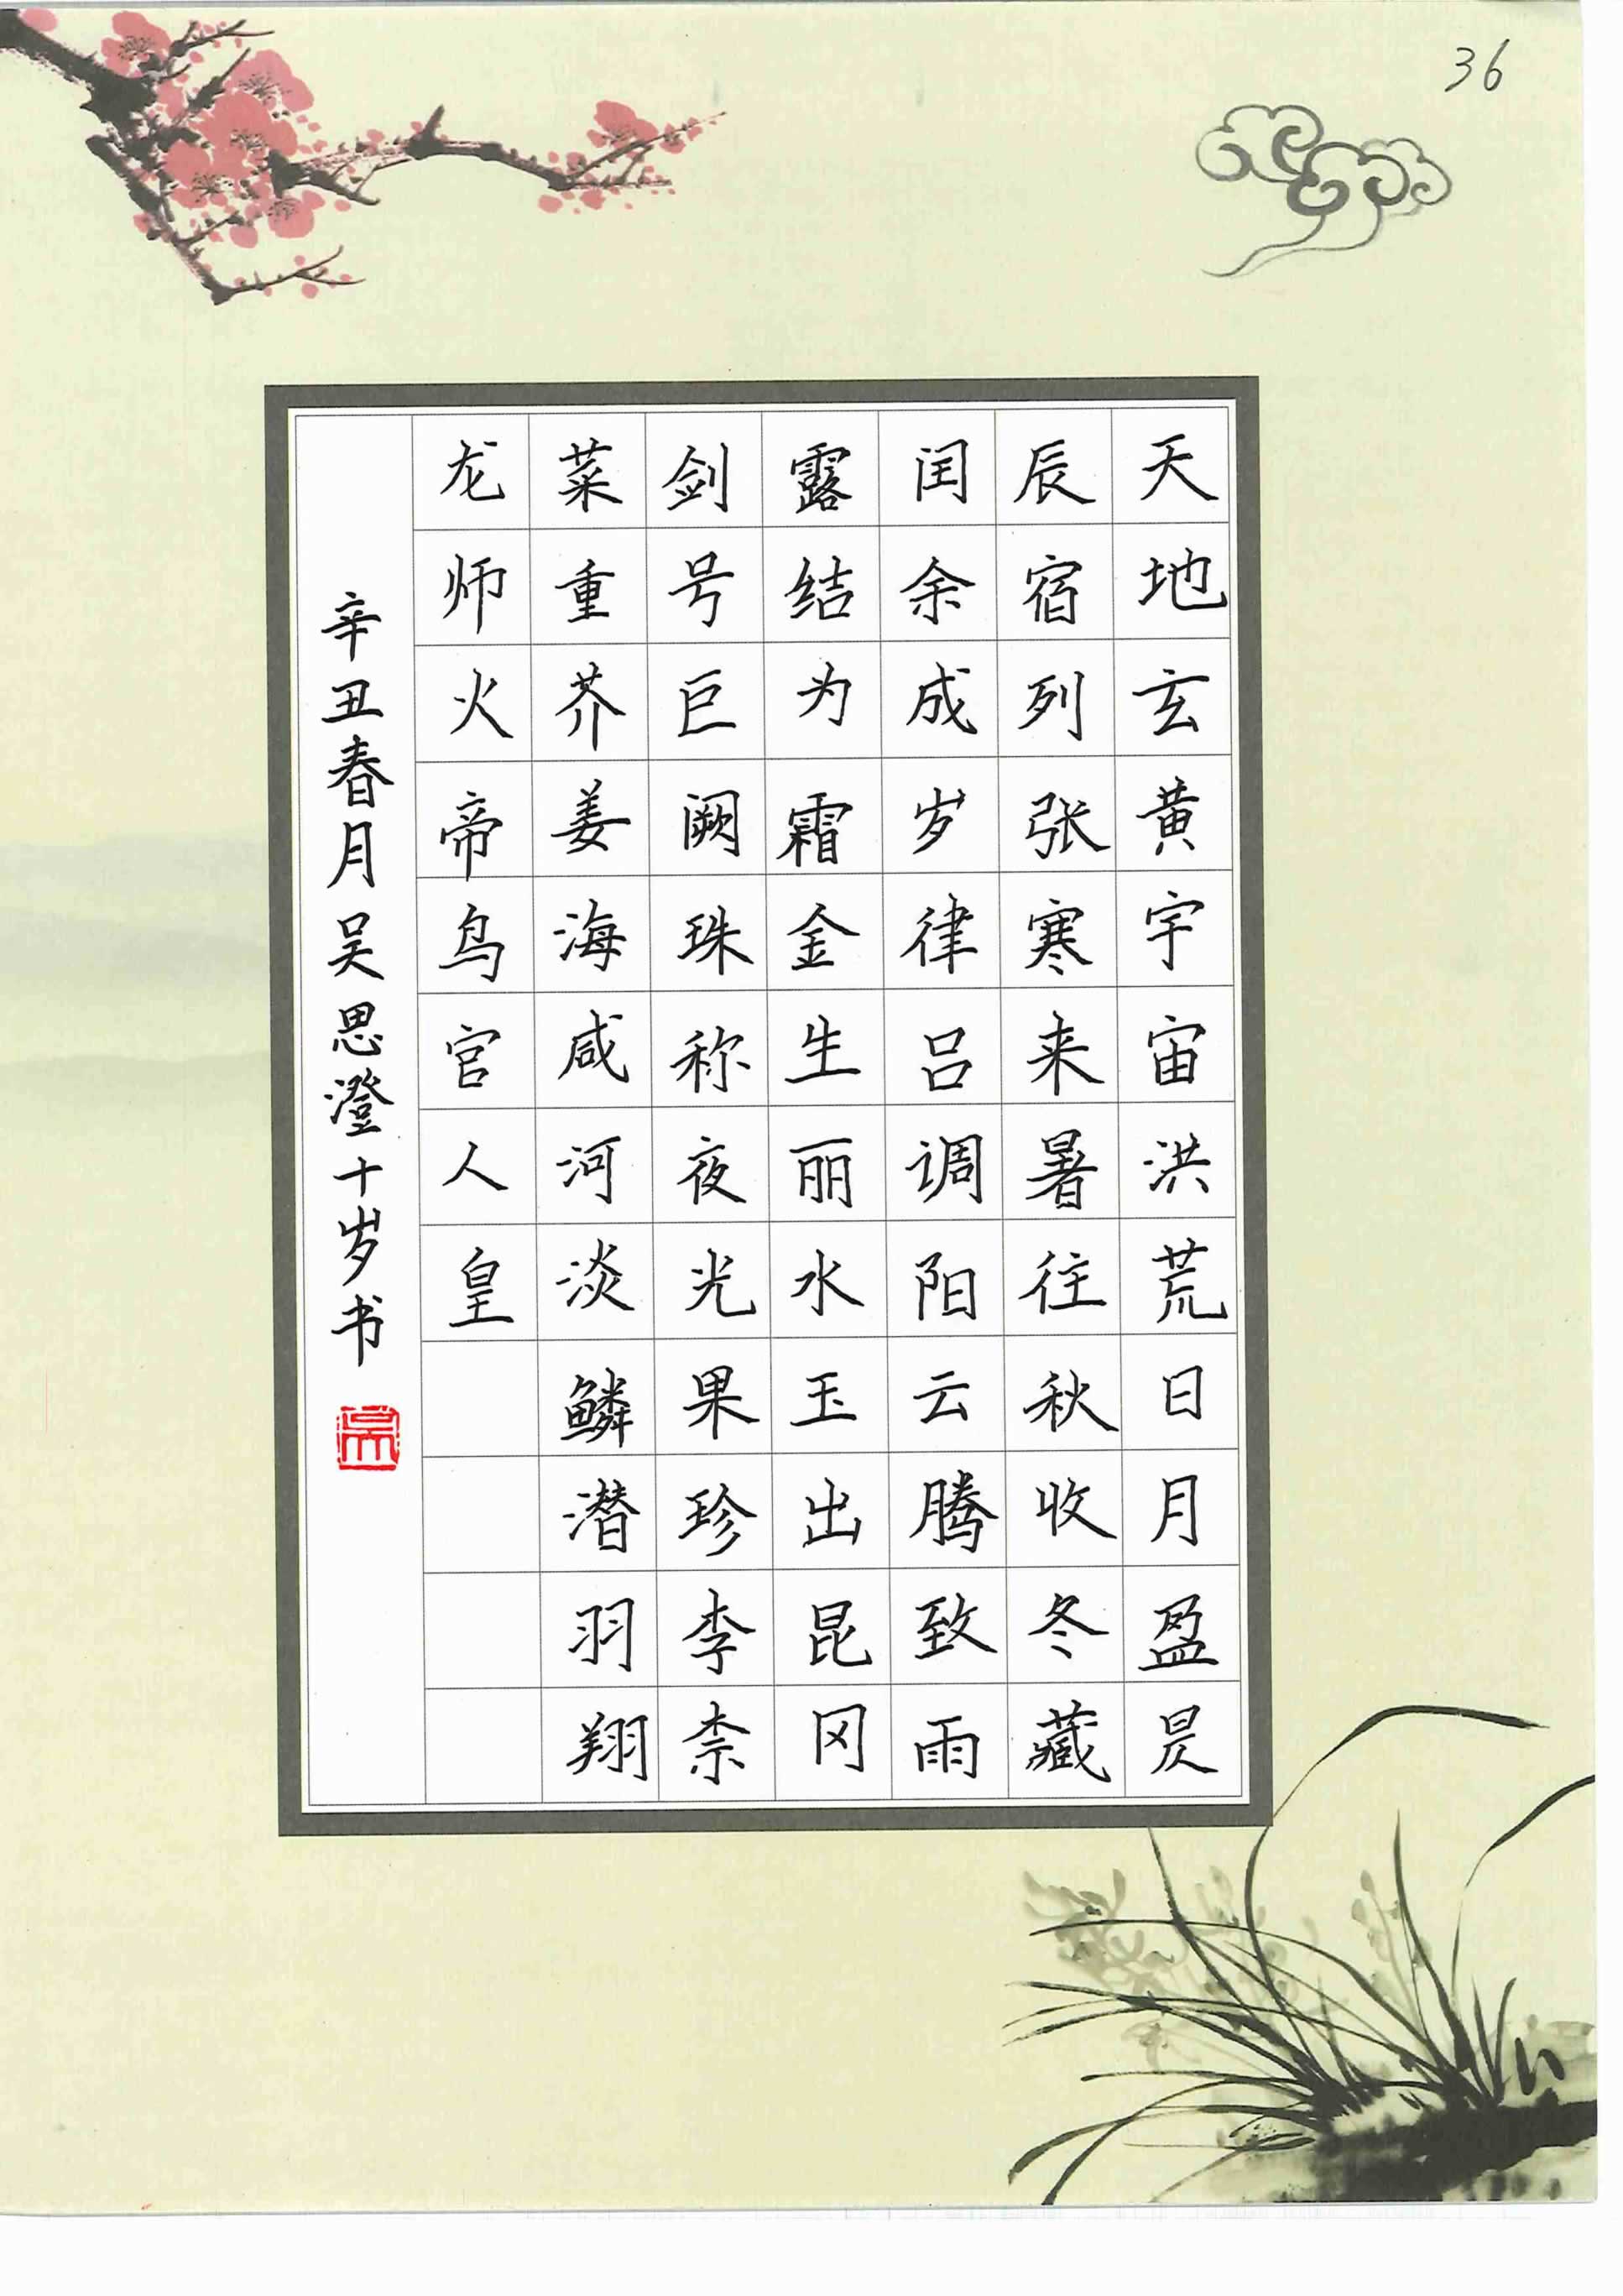 36
天地玄黄宇宙洪荒日月盈昃
辰宿列张寒来暑往秋收冬藏
闰余成岁律吕调阳云腾致雨
露结为霜金生丽水玉出昆冈
剑号巨阙珠称夜光果珍李柰
菜重芥姜海咸河淡鳞潜羽翔
龙师火帝鸟官人皇
辛丑春月吴思澄十岁书
吴